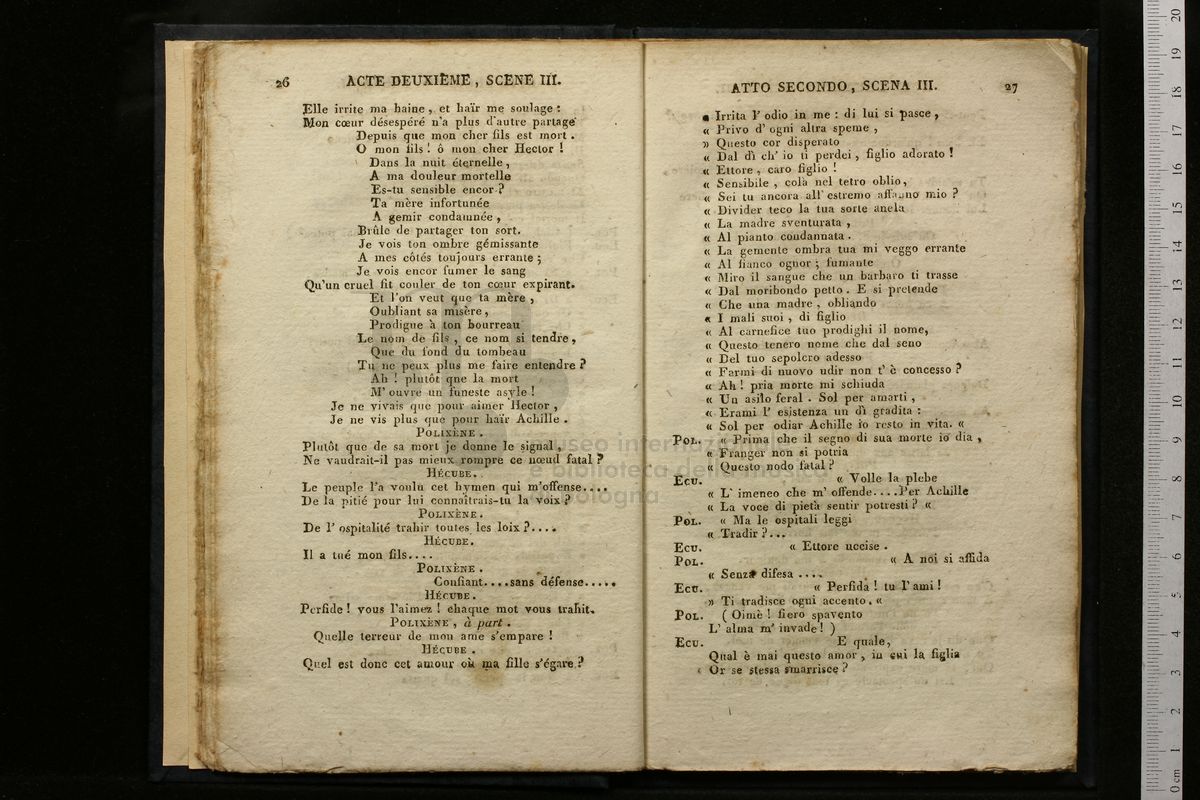 26
ACTE DEUXIÈME, SCENE III.
Elle irrite ma haine, et haïr me soulage :
Mon cœur désespéré n'a plus d'autre partage
Depuis que mon cher fils est mort.
O mon fils ! ô mon cher Hector !
Dans la nuit éternelle,
A ma douleur mortelle
Es-tu sensible encor ?
Ta mère infortunée
A gemir condamnée,
Brûle de partager ton sort.
Je vois ton ombre gémissante
A mes côtés toujours errante ;
Je vois encor fumer le sang
Qu'un cruel fit couler de ton cœur expirant.
Et l'on veut que ta mère,
Oubliant sa misère,
Prodigue à ton bourreau
Le nom de fils, ce nom si tendre,
Que du fond du tombeau
Tu ne peux plus me faire entendre ?
Ah ! plutôt que la mort
M'ouvre un funeste asyle !
Je ne vivais que pour aimer Hector,
Je ne vis plus que pour haïr Achille.
POLIXÈNE.
Plutôt que de sa mort je donne le signal,
Ne vaudrait-il pas mieux rompre ce nœud fatal ?
HÉCUBE.
Le peuple l'a voulu cet hymen qui m'offense....
De la pitié pour lui connaîtrais-tu la voix ?
POLIXÈNE.
De l'ospitalité trahir toutes les loix ?....
HÉCUBE.
Il a tué mon fils....
POLIXÈNE.
Confiant....sans défense.....
HÉCUBE.
Perfide ! vous l'aimez ! chaque mot vous trahit.
POLIXÈNE, à part.
Quelle terreur de mon ame s'empare !
HÉCUBE.
Quel est donc cet amour où ma fille s'égare ?
ATTO SECONDO, SCENA III.
27
« Irrita l'odio in me : di lui si pasce,
« Privo d'ogni altra speme,
» Questo cor disperato
« Dal dì ch'io ti perdei, figlio adorato !
« Ettore, caro figlio !
« Sensibile, colà nel tetro oblio,
« Sei tu ancora all'estremo affanno mio ?
« Divider teco la tua sorte anela
« La madre sventurata,
« Al pianto condannata.
« La gemente ombra tua mi veggo errante
« Al fianco ognor ; fumante
« Miro il sangue che un barbaro ti trasse
« Dal moribondo petto. E si pretende
« Che una madre, obliando
« I mali suoi, di figlio
« Al carnefice tuo prodighi il nome,
« Questo tenero nome che dal seno
« Del tuo sepolcro adesso
« Farmi di nuovo udir non t'è concesso ?
« Ah ! pria morte mi schiuda
« Un asilo feral. Sol per amarti,
« Erami l'esistenza un dì gradita :
« Sol per odiar Achille io resto in vita. «
POL. « Prima che il segno di sua morte io dia,
« Franger non si potria
« Questo nodo fatal ?
ECU. « Volle la plebe
« L'imeneo che m'offende....Per Achille
« La voce di pietà sentir potresti ? «
POL. « Ma le ospitali leggi
« Tradir ?...
ECU. « Ettore uccise.
POL. « A noi si affida
« Senza difesa ....
ECU. « Perfida ! tu l'ami !
» Ti tradisce ogni accento. «
POL. ( Oimè ! fiero spavento
L'alma m'invade ! )
ECU. E quale,
Qual è mai questo amor, in cui la figlia
Or se stessa smarrisce ?
museo internazionale
e biblioteca della musica
di bologna
0 cm 1 2 3 4 5 6 7 8 9 10 11 12 13 14 15 16 17 18 19 20